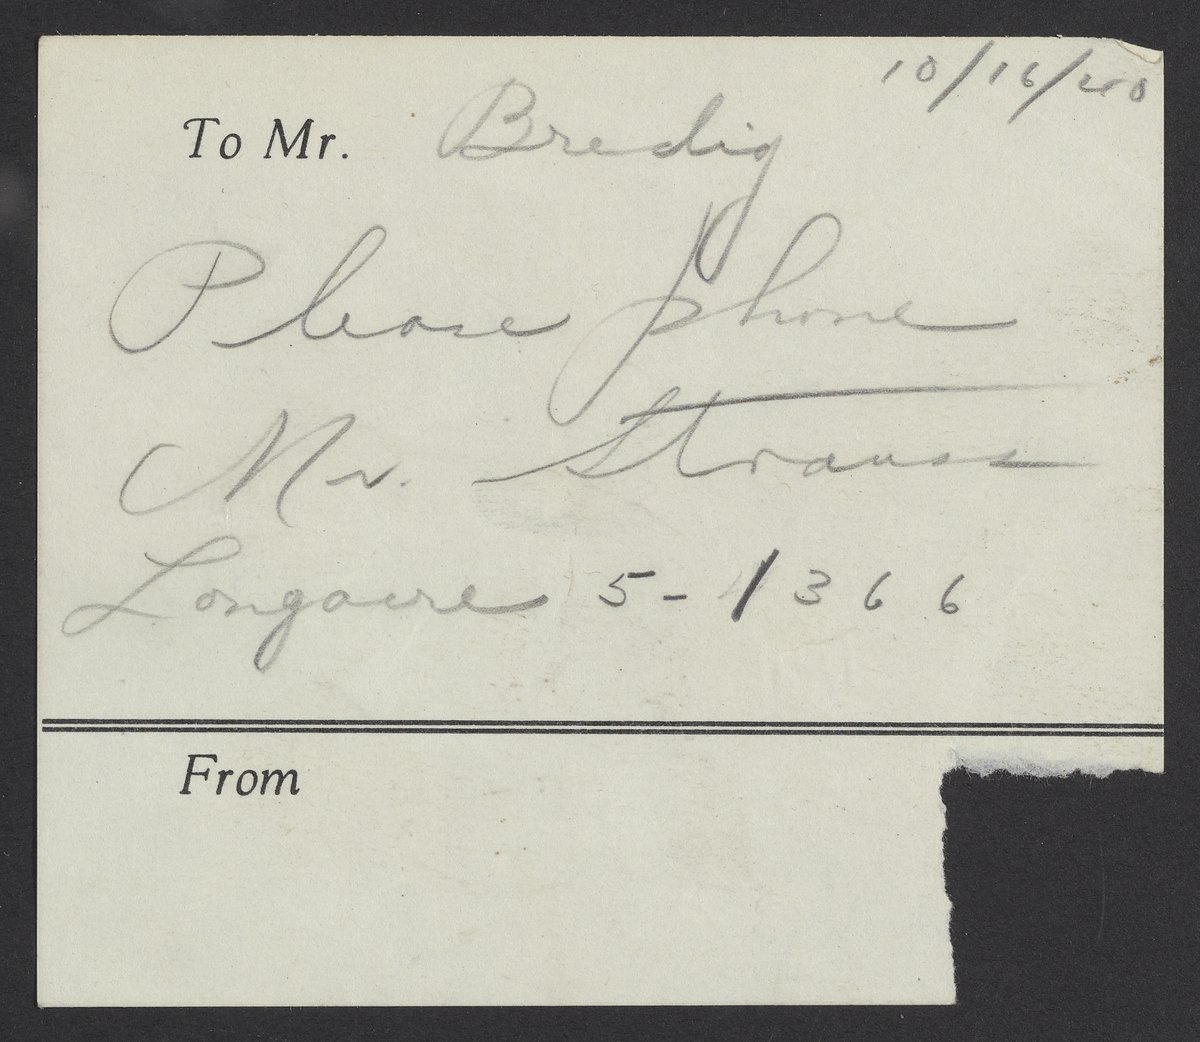 10/16/40
To Mr. Bredig
Please phone
Mr. Strauss
Longacre 5-1366
From